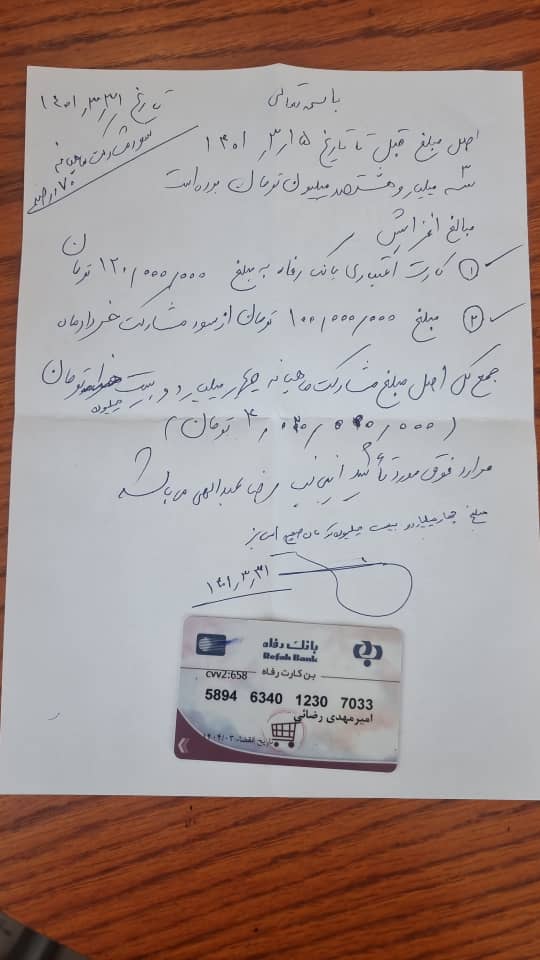 باسمه تعالی
تاریخ ۱۴۰۱٫۳٫۳۱
سود مشارکت ماهیانه
۷۰ درصد
اصل مبلغ قبل تا تاریخ ۱۴۰۱٫۳٫۱۵
۳ سه میلیارد و هشتصد میلیون تومان بوده است
مبالغ افزایش
۱ کارت اعتباری بانک رفاه به مبلغ ۱۲۰/۰۰۰/۰۰۰ تومان
۲ مبلغ ۱۰۰/۰۰۰/۰۰۰ تومان از سود مشارکت خرداد ماه
جمع کل اصل مبلغ مشارکت ماهیانه چهار میلیارد و بیست میلیون تومان
(۴٫۰۲۰/۰۰۰/۰۰۰ تومان)
موارد فوق مورد تأئید اینجانب رضا عبدالهی می باشد
مبلغ چهار میلیارد و بیست میلیون تومان صحیح
۱۴۰۱٫۳٫۳۱
بانک رفاه
Refah Bank
بن کارت رفاه
cvv2:658
5894 6340 1230 7033
امیرمهدی رضائی
تاریخ انقضاء: ۱۴۰۴/۰۳